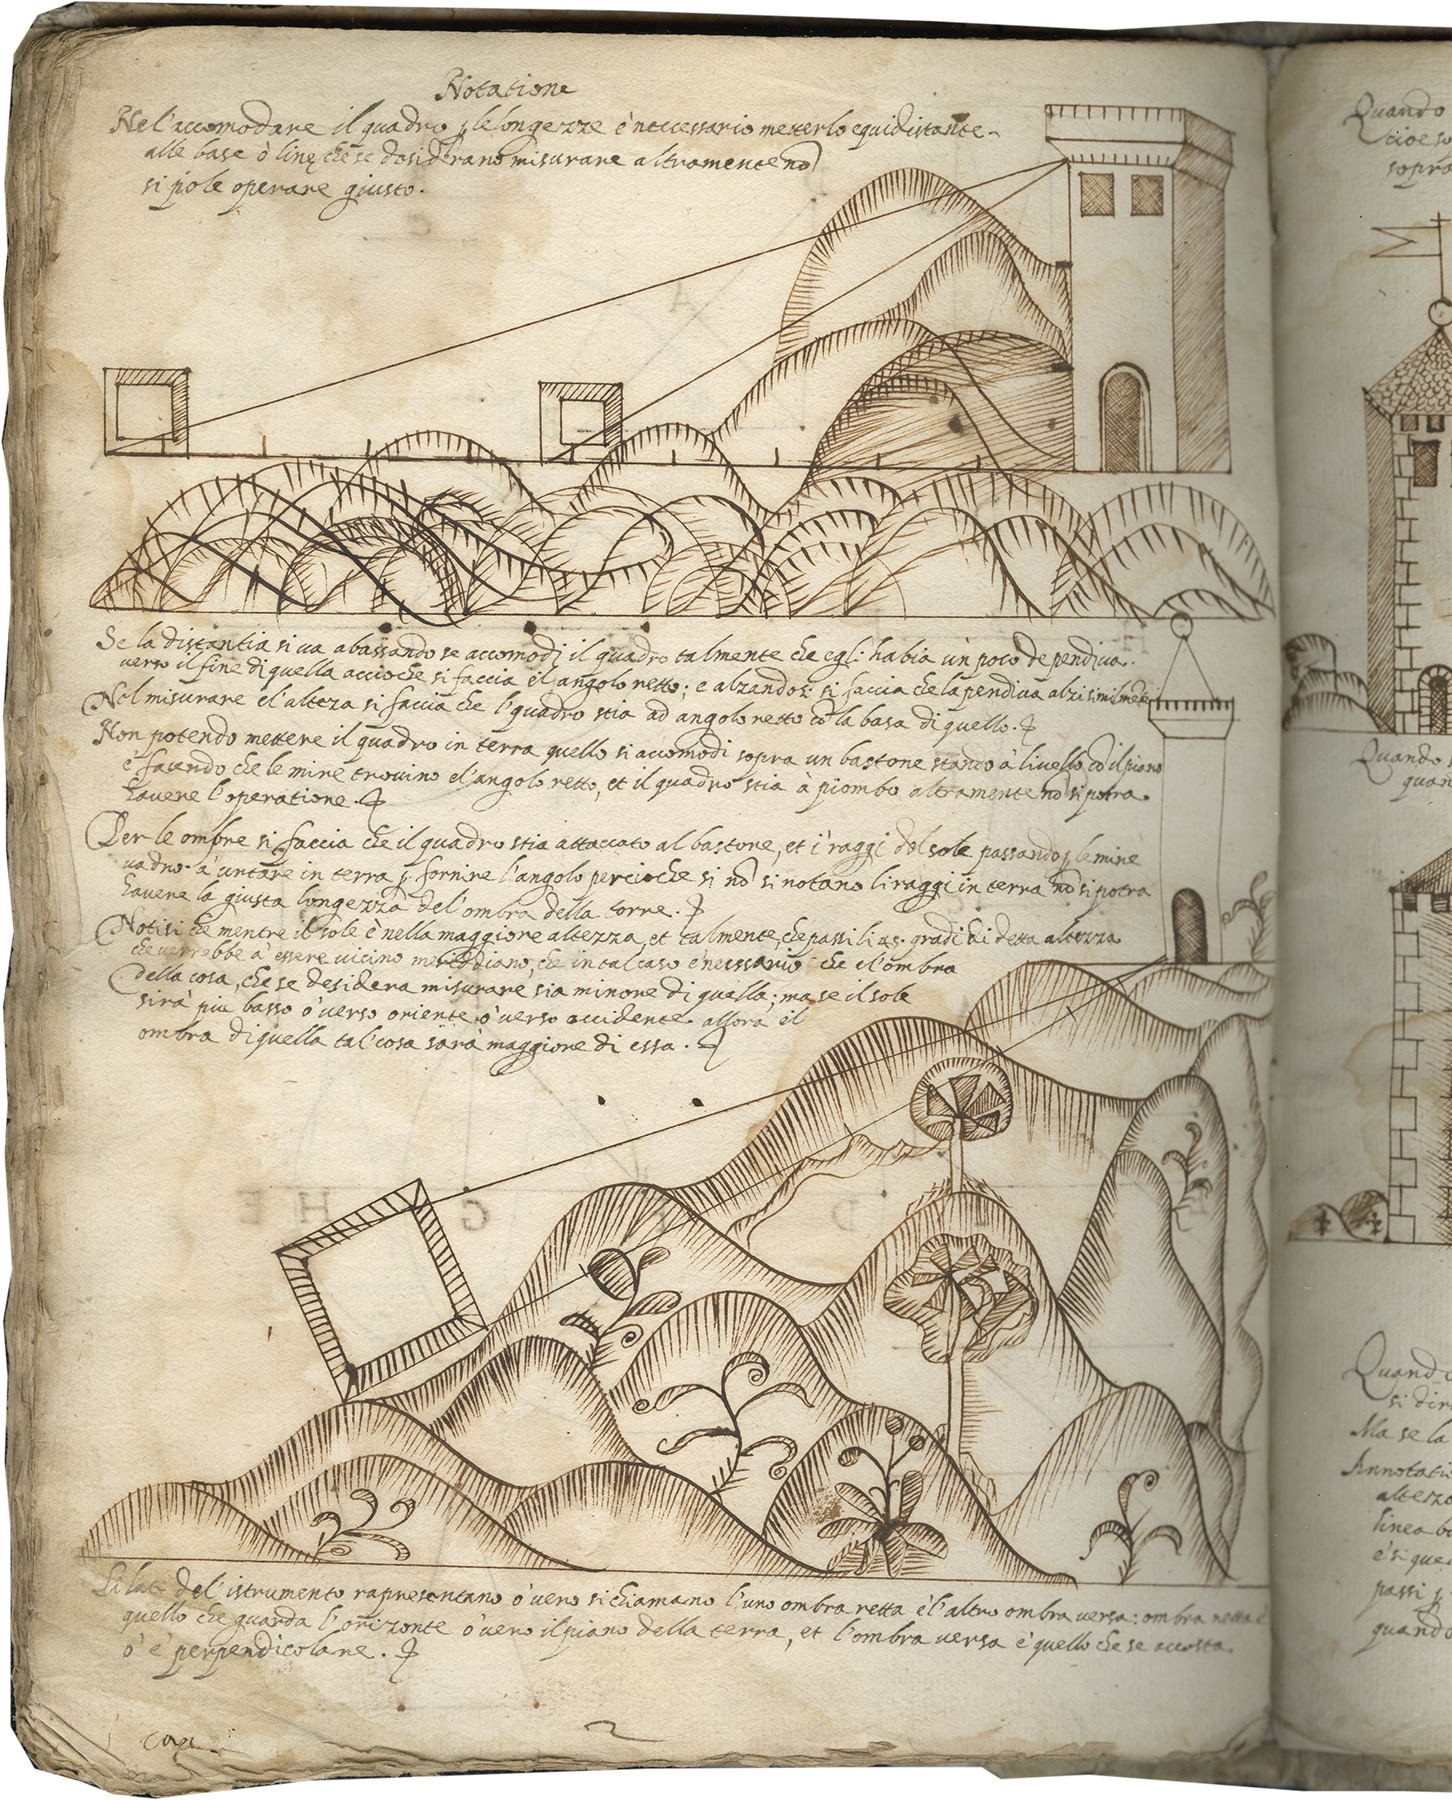 Notatione
Nel'accomodare il quadro ꝑ le longezze è neccessario meterlo equidistante
alle base ò lineę che se desiderano misurare altramente nõ
si pole operare giusto.
Se la distantia si va abassando se accomodi il quadro talmente che egli habia un poco de pendiva
verso il fine di quella accioche si faccia el angolo retto; e alzandosi si faccia che la pendiva alzi similmente
Nel misurare el'alteza si facia che l'quadro stia ad angolo retto cõ la basa di quello.
Non potendo mettere il quadro in terra quello si accomodi sopra un bastone stando à livello cõ il piano
è facendo che le mire trovino el'angolo retto, et il quadro stia à piombo altramente nõ si potra
havere l'operatione.
Per le ombre si faccia che il quadro stia attaccato al bastone, et i raggi del sole passando ꝑ le mire
vadno à untare in terra ꝑ fornire l'angolo percioche si nõ si notano li raggi in terra nõ si potra
havere la giusta longezza del'ombra della torre.
Notisi che mentre il sole è nella maggiore altezza, et talmente, che passi li 45. gradi di detta altezza
che verrebbe à essere vicino meriddiano, che in tal caso è nessario che el'ombra
della cosa, che se desidera misurare sia minore di quella; ma se il sole
sirà piu basso ò verso oriente, ò verso occidente allora il
ombra di quella tal'cosa sarà maggiore di essa.
Li lati del'istrumento rapresentano ò vero si chiamano l'uno ombra retta è l'altro ombra versa: ombra retta è
quello che guarda l'orizonte ò vero il piano della terra, et l'ombra versa è quello che se accosta
ò è perpendicolare.
2
Quando
cioe so
sopra
Quando
quan
Quando
si dir
Ma se la
Annotati
altezz
linea b
è si que
passi ꝑ
quando